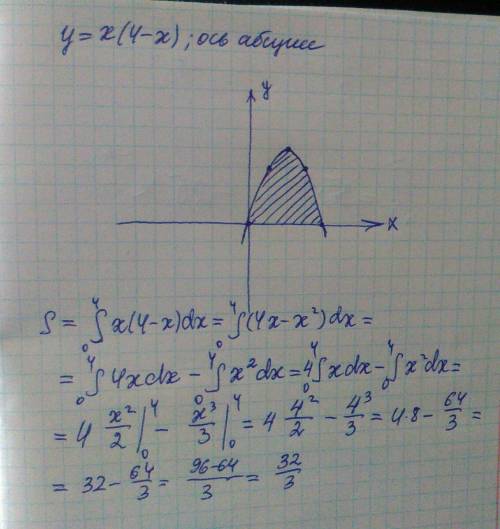 y = x(4-x); ось абцисс
y
x
S = ₀⁴∫ x(4-x)dx = ₀⁴∫(4x-x²)dx =
= ₀⁴∫ 4xdx - ₀⁴∫ x²dx = 4 ₀⁴∫ xdx - ₀⁴∫ x²dx =
= 4 x²/2 |₀⁴ - x³/3 |₀⁴ = 4 4²/2 - 4³/3 = 4·8 - 64/3 =
= 32 - 64/3 = 96-64/3 = 32/3